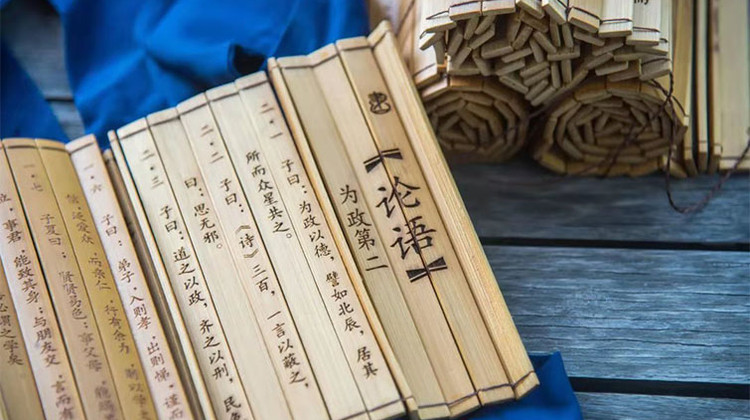 论语
为政第二
二·一 子曰：为政以德，譬如北辰，居其
所而众星共之。
二·二 子曰：《诗》三百，一言以蔽之，
曰：思无邪。
二·三 子曰：道之以政，齐之以刑，民
一·六 子曰：弟子，入则孝，出则悌，谨而
爱众，而亲仁，行有余力，则以学
一·七 子夏曰：贤贤易色；事父母，
事君，能致其身；与朋友交，言而有
必谓之学矣